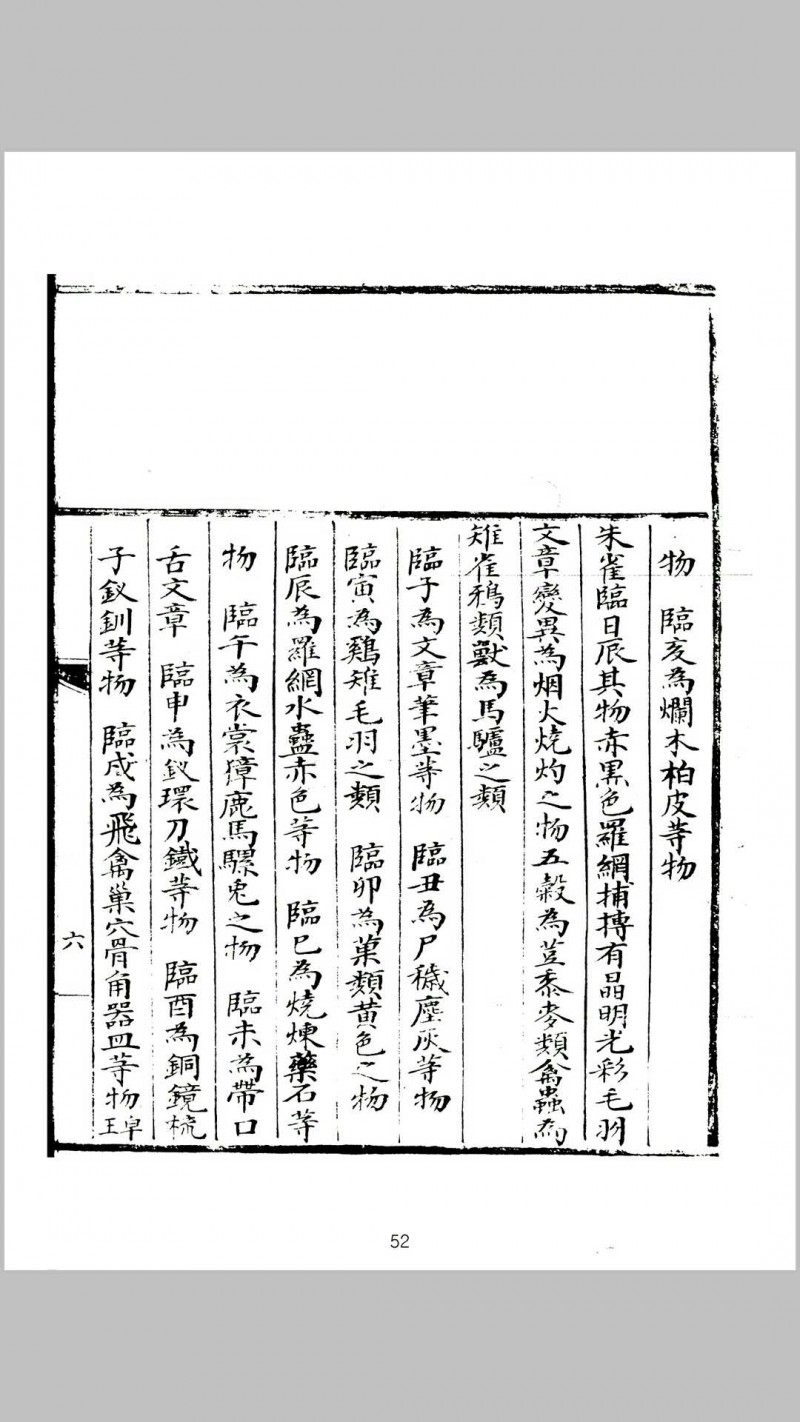 物　臨亥為爛木柏皮等物
朱雀臨日辰其物赤黒色羅網捕摶有晶明光彩毛羽
文章變異為烟火燒灼之物五穀為荳黍麥類禽蟲為
雉雀鴉類獸為馬驢之類
臨子為文章筆墨等物　臨丑為尸穢塵灰等物
臨寅為鷄雉毛羽之類　臨卯為菓類黄色之物
臨辰為羅網水蠱赤色等物　臨巳為燒煉藥石等
物　臨午為衣裳獐鹿馬騾兎之物　臨未為帶口
舌文章　臨申為釵環刀鐵等物　臨酉為銅鏡梳
子釵釧等物　臨戌為飛禽巢穴骨角器皿等物
六
52